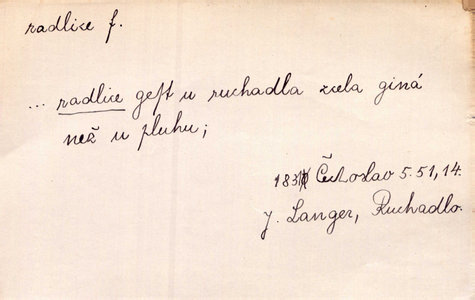 radlice f.
... radlice gest u ruchadla zcela giná
než u pluhu;
Čechoslav 5.51,14.
J. Langer, Ruchadlo.